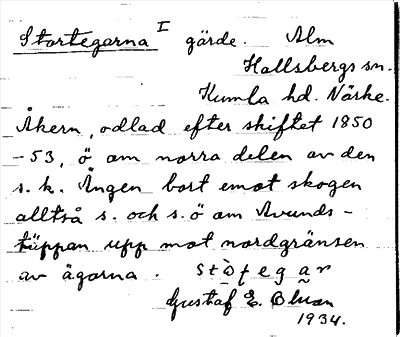 Stortegarna I gärde. Alm
Hallsbergs sn.
Kumla hd. Närke.
Åkern, odlad efter skiftet 1850
-53, ö om norra delen av den
s. k. Ängen bort emot skogen
alltså s. och s. ö om Avunds-
täppan upp mot nordgränsen
av ägorna.
Gustaf E. Ohman
1934.